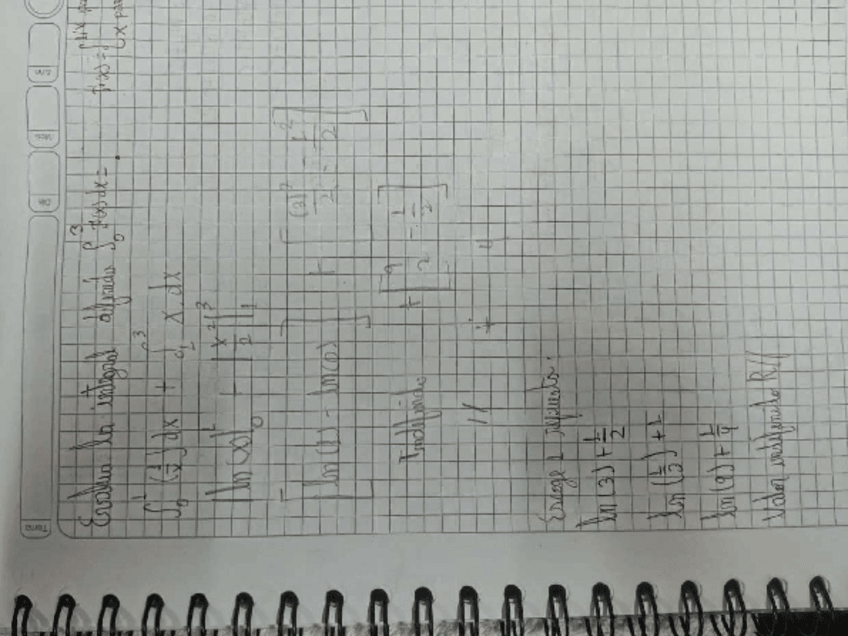 Tema
Evalua la integral definida ∫₀³ f(x) dx = . f(x) = { 1/x
x
∫₀¹ (1/x) dx + ∫₁³ x dx
|ln(x)|₀¹ + |x²/2|₁³
[ln(1) - ln(0)] + [(3)²/2 - 1²/2]
Indefinido + [9/2 - 1/2]
// + 4
Escoge 1 respuesta.
ln(3) + 1/2
ln(9) + 1/9
Valor indefinido R//